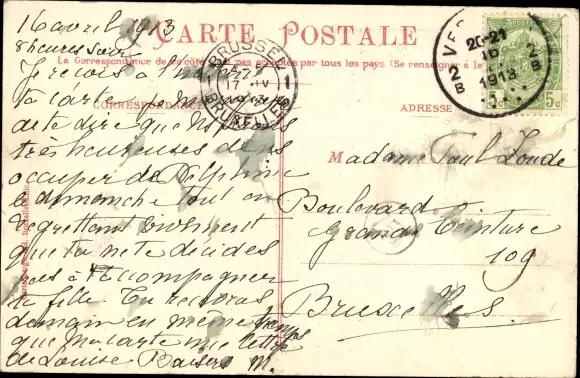 16 avril 1913
8 heures soir
CARTE POSTALE
La Correspondance pas acceptée par tous les pays (Se renseigner à la
CORRESPONDANCE
ADRESSE
Je reçois à l'instant
ta carte
de te dire que nous serons
très heureuses de n/s
occuper de Delphine
le dimanche tout en
regrettant vivement
que tu ne te décides
pas à l'accompagner
ta fille. Tu recevras
demain en même temps
que ma carte une lettre
de Louise Baisers M.
BRUSSEL
17 IV
BRUXELLES
1
20-21
16
1913
2B
2B
5c
5c
Madame Paul Londe
Boulevard
Grande Ceinture
109
Bruxelles